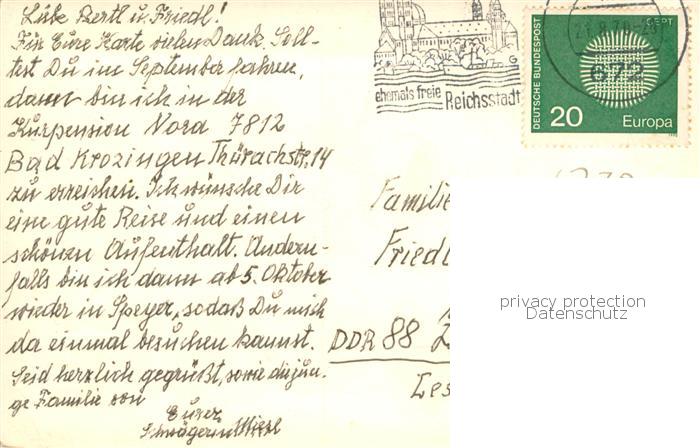 Liebe Bertl u. Friedl!
Für Eure Karte vielen Dank. Soll-
test Du im September fahren,
dann bin ich in der
Kurpension Nord 7812
Bad Krozingen Thürachstr. 14
zu erreichen. Ich wünsche Dir
eine gute Reise und einen
schönen Aufenthalt. Andern-
falls bin ich dann ab 5. Oktober
wieder in Speyer, sodaß Du mich
da einmal besuchen kannst.
Seid herzlich gegrüßt, sowie die jun-
ge Familie von
Eurer
Schwägerin
ehemals freie
Reichsstadt
672
DEUTSCHE BUNDESPOST
CEPT
20 Europa
Familie
Friedl
DDR 88
privacy protection
Datenschutz